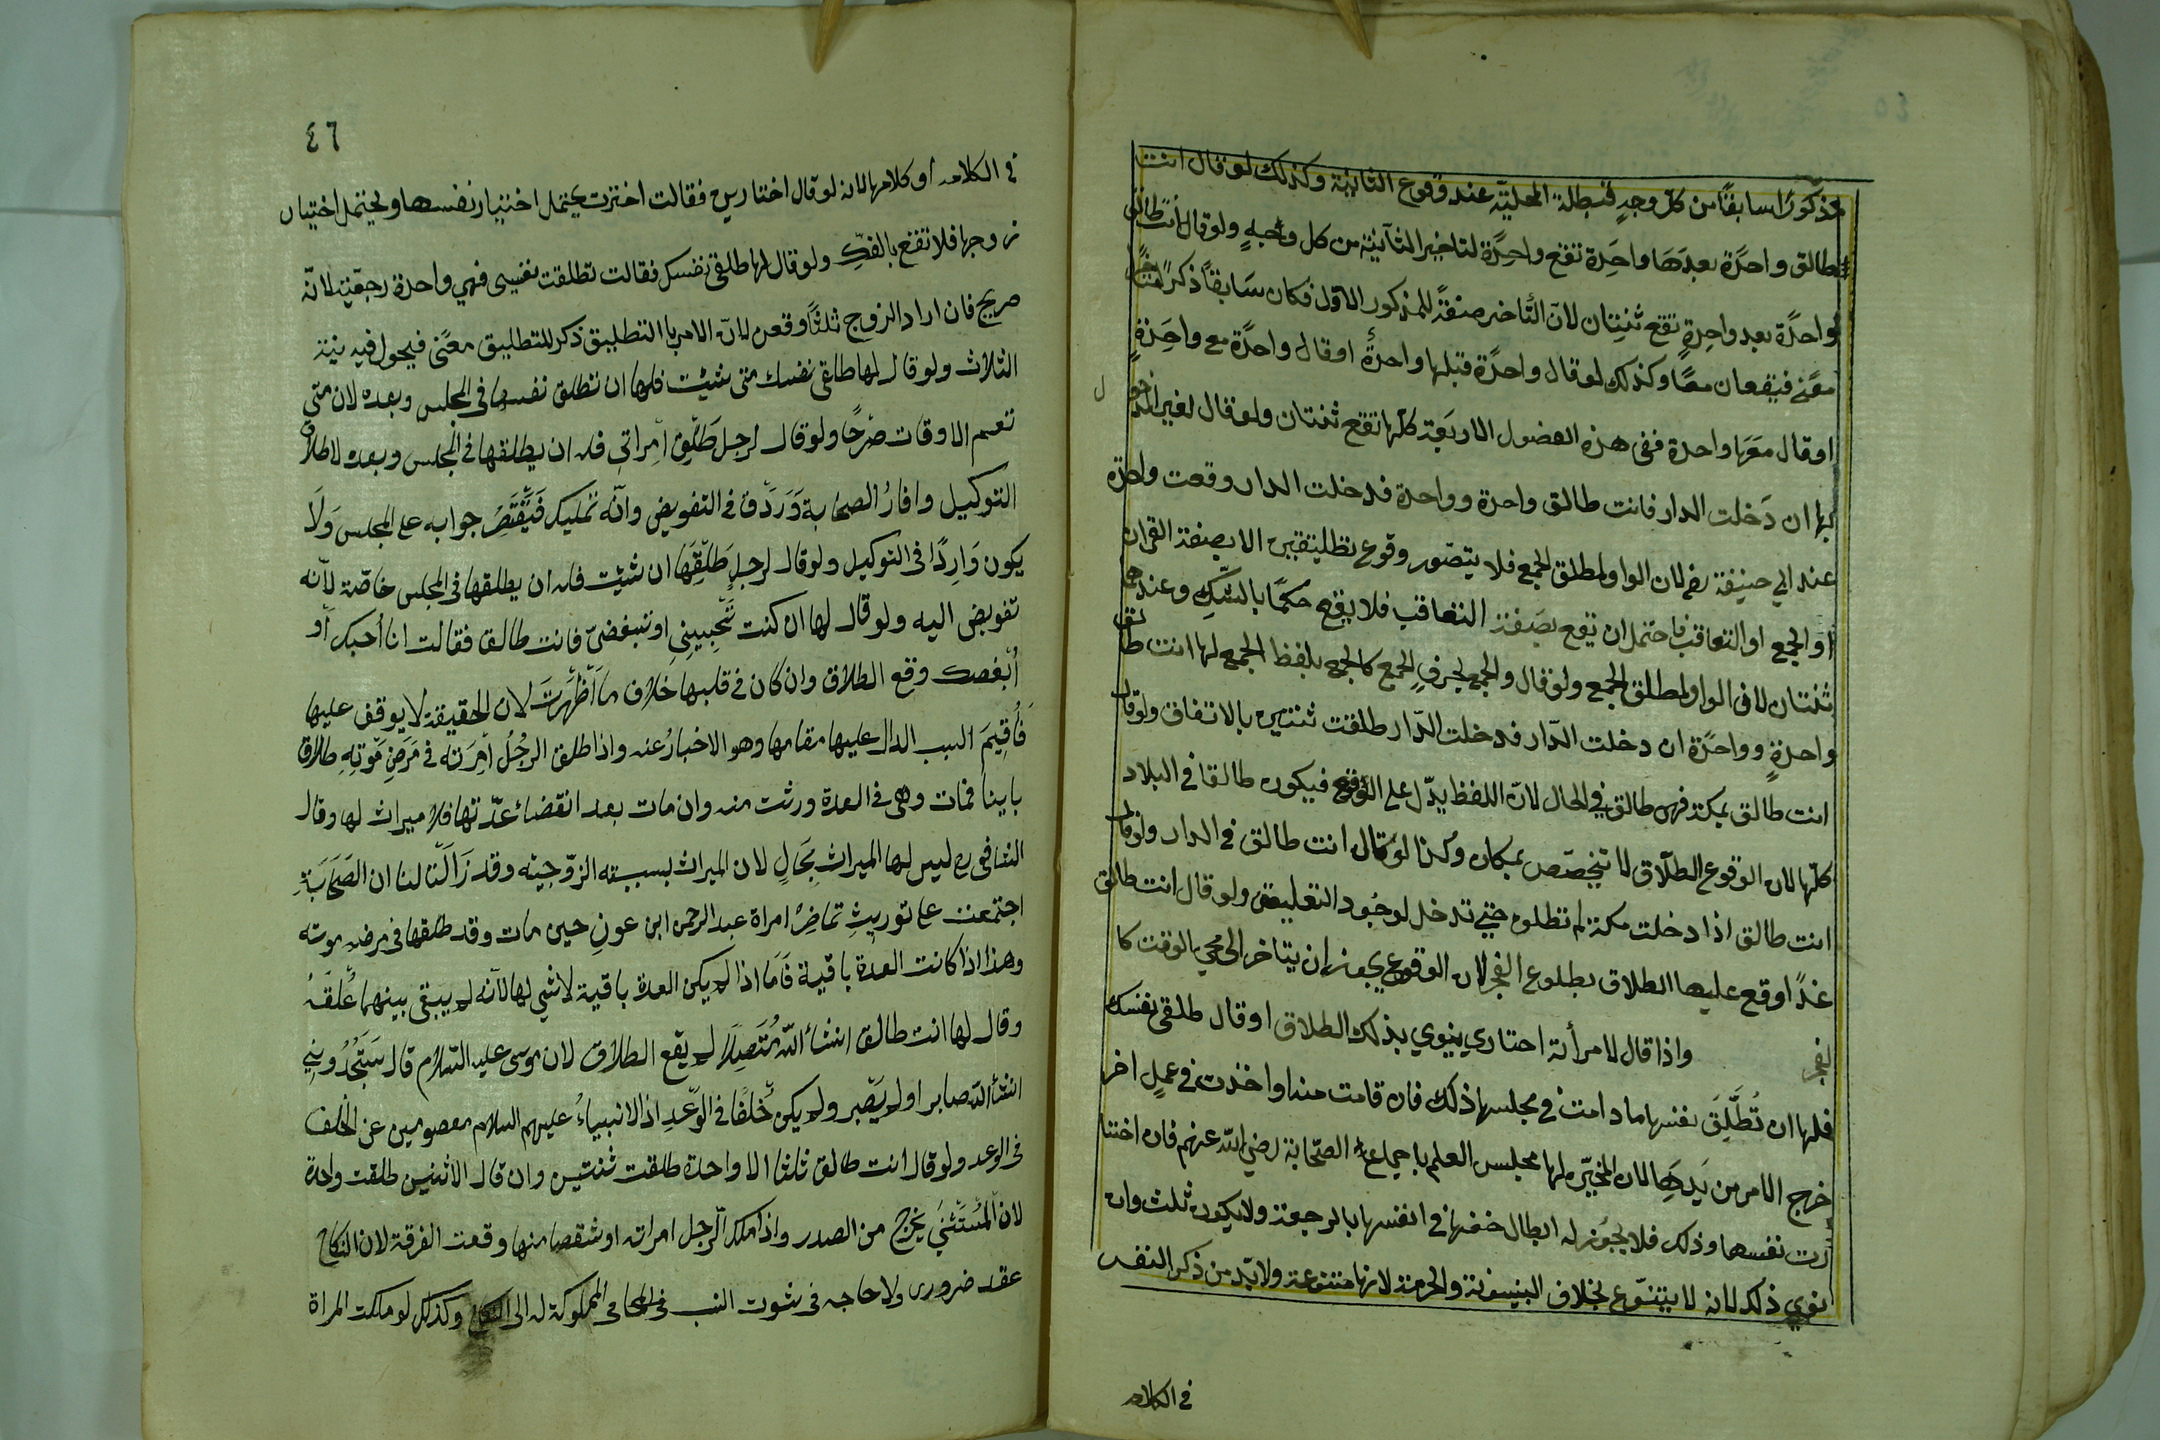 مذكورًا سابقًا من كل وجهٍ فتبطلة المحليّة عند وقوع الثانية وكذلك لو قال انت
طالق واحدًة بعدَهَا واحِدة تقع واحِدًة لتاخير الثآنية من كل وجهٍ ولو قال أنت طالق
واحدًة بعد واحِدةٍ تقع ثنتِان لانّ التَّاخير صفةً للمذكور الاوّل فكان سَابقًا ذكرًا
معًنى فيقعان معًا وكذلك لو قال واحدًة قبلها واحدةٌ اوقال واحدًة مع واحَدةٍ
اوقال معَهَا واحدة ففى هذه الفصول الاربَعة كلّها تقع ثنتان ولو قال لغير المدخو ل
بها ان دَخلت الدار فانت طالق واحدة وواحدة فدخلت الدار وقعت واحدَة
عند ابي حنيفة رض لان الواو لمطلق الجمع فلا يتصّور وقوع تطليقتين الا بصفة القران
اوَ الجمع او التعاقب فاحتمل ان تقع بصَفة التعاقب فلا يقع حكمًا بالشكِ وعندهما
ثنتان لان الواو لمطلق الجمع ولو قال والجمع بحرفِ الجمع كالجمع بلفظ الجمع لها انت طالق
واحدةٍ وواحدًة ان دخلت الدّار فدخلت الدّار طلقت ثنتين بالاتفاق ولو قال
انت طالق بمكة فهي طالق في الحال لانّ اللفظ يدّل على الوقوع فيكون طالقا في البلاد
كلّها لان الوقوع الطّلآق لا يتخصّص بمكان وكذا لو قال انت طالق في الدار ولو قال
انت طالق اذا دخلت مكة لم تطلق حتي تدخل لوجُود التعليق ولو قال انت طالق
غدًا وقع عليها الطلاق بطلوع الفجر لان الوقوع يجوز ان يتاخر الى مجي الوقت كا
لفجر واذا قال لامرأته اختاري ينوي بذلك الطلاق اوقال طلقى نفسك
فلها ان تُطَلِّقَ نفسها ما دامت في مجلسها ذلك فان قامت منه او اخذت في عملٍ اخر
خرج الامر من يَدِهَا لان المخيّره لها مجلس العلم باجماع الصّحابة رضي الله عنهم فان اختا
رت نفسها وذلك فلا يجُوز له ابطال حقها في انفسها بالرجعة ولا يكون ثلث وان
نوي ذلك لانه لا يتنوّع بخلاف البينونة والحرمة لانها متنوعة ولا بدّ من ذكر النفس
في الكلام
٤٦
في الكلامه أو كلامها لانه لو قال اختاري فقالت اخترت يحتمل اختيار نفسها ويحتمل اختيار
زوجها فلا تقع بالشكِ ولو قال لها طلقى نفسك فقالت تطلقت نفسى فهي واحدة رجعّية لانّه
صريح فان اراد الزوج ثلثًا وقعن لانّ الامر با التطليق ذكر للتطليق معًنى فيحول فيه نية
الثلاث ولو قال لها طلقى نفسك متى شئت فلها ان تطلق نفسها في المجلس وبعده لان متي
تعم الاوقات صرحًا ولو قال لرجل طَلّق أمراتي فله ان يطلقها في المجلس وبعده لاطلاق
التوكيل واثارُ الصحابة وَرَدَت في التفويض وانّه تمليك فَيَقْتَصِرُ جوابه على المجلس وَلَا
يكون وَارِدًا في التوكيل ولو قال لرجل طَلّقِهَا ان شئت فله ان يطلقها في المجلس خاصّة لأنه
تفويض اليه ولو قال لها ان كنت تُحِّبينِي او تبغضىّ فانت طالق فقالت انا أحبك أو
أبْغضك وقع الطلاق وان كان في قلبها خلاف ما أظْهَرتَ لان الحقيقة لا يوقف عليها
فَأُقِيَمَ السبب الدال عليها مقامها وهو الاخبارُ عنه واذا طلق الرجُلُ أمِرَته في مَرَضِ مَوْتِهِ طلاق
باينا فمات وهى في العدة ورثت منه وان مات بعد انقضاء عدّتها فلا ميراث لها وقال
الشافعى رح ليس لها الميراث بِحَالٍ لان الميراث بسببته الزّوجيته وقد زَالَت لنا ان الصَحَابَةِ
اجتمعت على توريثِ تماضِرْ امراة عبد الرحمن ابن عونِ حين مات وقد طلقها في مرضه موته
وهذا اذا كانت العدة باقية فَامَا اذا لم يكن العدة باقية لا شي لها لأنه لم يبقى بينهما عُلقَهُ
وقال لها انت طالق انشأ اللّه مُتَصِلًا لم يقع الطلاق لان موسى عليه السّلام قال سَتَجُدُونِي
انشأ الله صابرا ولم يَصْبر ولم يكن خُلفًا في الوَعْدِ اذ الانبياءُ عليهم السلام معصومين عن الخلف
فى الوعد ولو قال انت طالق ثلثا الا واحدة طلقت ثنتين وان قال الاثنين طلقت واحدة
لان المُسْتَثنيَ يخرج من الصدر واذا ملك الرجل امراته او شقصا منها وقعت الفرقة لان النكاح
عقد ضرورى ولا حاجه فى ثبوت النسب في المملوكة له الى النكاح وكذلك لو ملكت المراة